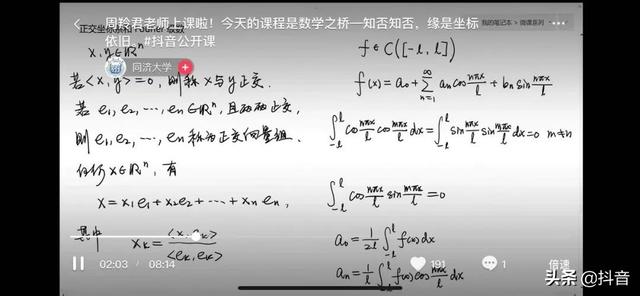 正交坐标系和 Fourier 级数
我的笔记本 > 微课系列
周羚君老师上课啦！今天的课程是数学之桥—知否知否，缘是坐标
依旧，#抖音公开课
同济大学
x, y ∈ ℝⁿ
若 <x, y> = 0, 则称 x 与 y 正交.
若 e₁, e₂, ⋯, eₙ ∈ ℝⁿ, 且两两正交,
则 e₁, e₂, ⋯, eₙ 称为正交向量组.
任何 x ∈ ℝⁿ, 有
x = x₁e₁ + x₂e₂ + ⋯ + xₙeₙ,
其中 xₖ = <x, eₖ> / <eₖ, eₖ>
f ∈ C([-l, l])
f(x) = a₀ + ∑_{n=1}^{∞} aₙ cos nπx/l + bₙ sin nπx/l
∫_{-l}^{l} cos nπx/l cos mπx/l dx = ∫_{-l}^{l} sin nπx/l sin mπx/l dx = 0 m≠n
∫_{-l}^{l} cos nπx/l sin mπx/l = 0
a₀ = 1/2l ∫_{-l}^{l} f(x) dx
aₙ = 1/l ∫_{-l}^{l} f(x) cos nπx/l dx
02:03 / 08:14
191
1
倍速
头条 @抖音